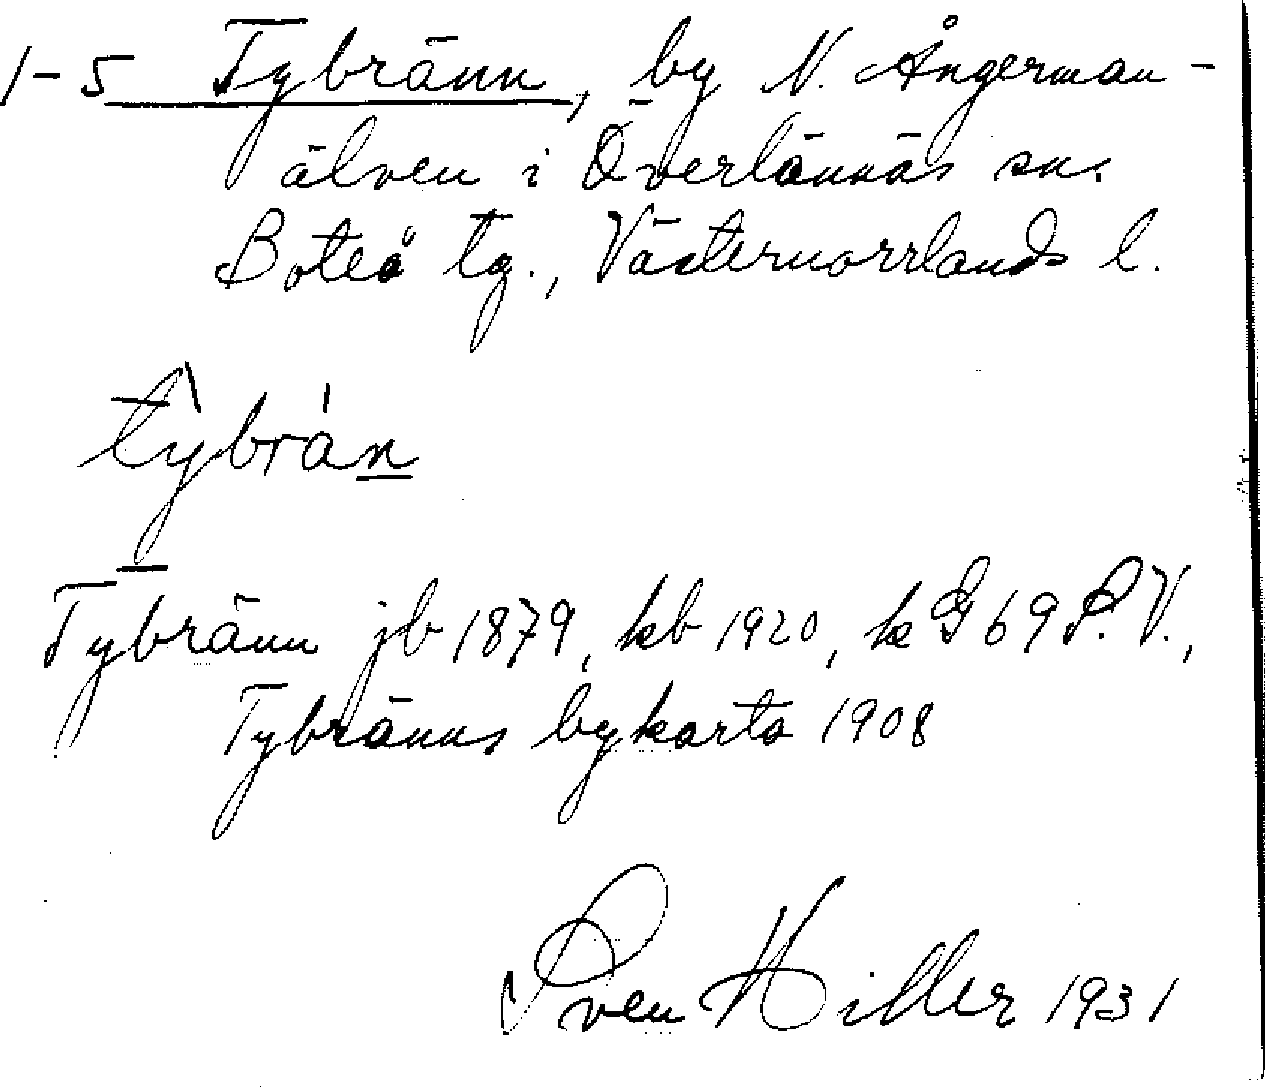 1-5 Tybränn, by N. Ångerman-
älven i Överlännäs sn.
Boteå tg., Västernorrlands l.
tỳbrán
Tybränn jb 1879, kb 1920, k G 69 S.V.,
Tybränns bykarta 1908
Sven Hiller 1931